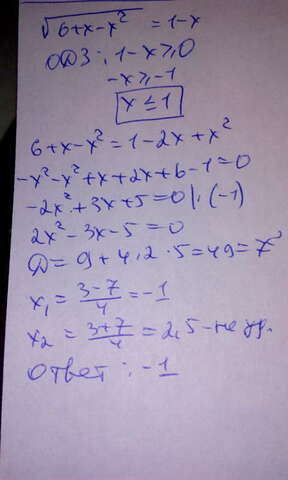 √(6+x-x²) = 1-x
ОДЗ: 1-x ≥ 0
-x ≥ -1
x ≤ 1
6+x-x² = 1-2x+x²
-x²-x²+x+2x+6-1=0
-2x²+3x+5=0 |·(-1)
2x²-3x-5=0
D = 9+4·2·5=49=7²
x₁ = (3-7)/4 = -1
x₂ = (3+7)/4 = 2,5 - не уд.
Ответ: -1